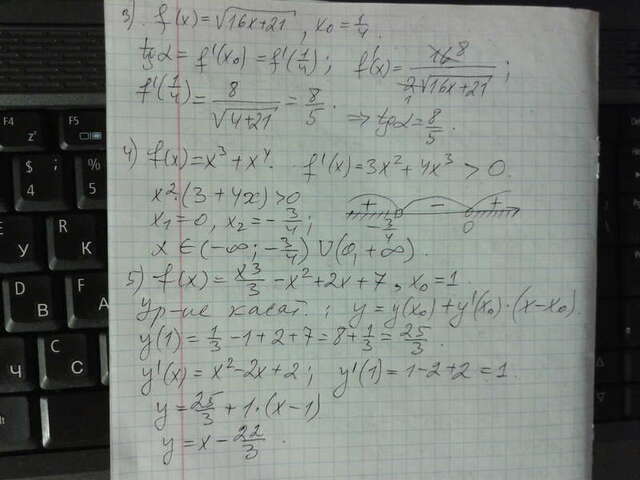 3) f(x)=√(16x+21), x₀=1/4.
tgα=f'(x₀)=f'(1/4); f'(x)=16 8/(2 1 √(16x+21));
f'(1/4)=8/√(4+21)=8/5. ⇒ tgα=8/5.
4) f(x)=x³+x⁴. f'(x)=3x²+4x³>0.
x²·(3+4x)>0
x₁=0, x₂=-3/4;
+ - +
-3/4 0
x∈(-∞;-3/4)∪(0,+∞).
5) f(x)=x³/3-x²+2x+7, x₀=1.
Ур-ие касат.: y=y(x₀)+y'(x₀)·(x-x₀).
y(1)=1/3-1+2+7=8+1/3=25/3.
y'(x)=x²-2x+2; y'(1)=1-2+2=1.
y=25/3+1·(x-1)
y=x-22/3.
F4
F5
z'
$
4
%
5
R
К
D
В
F
А
Ч
С